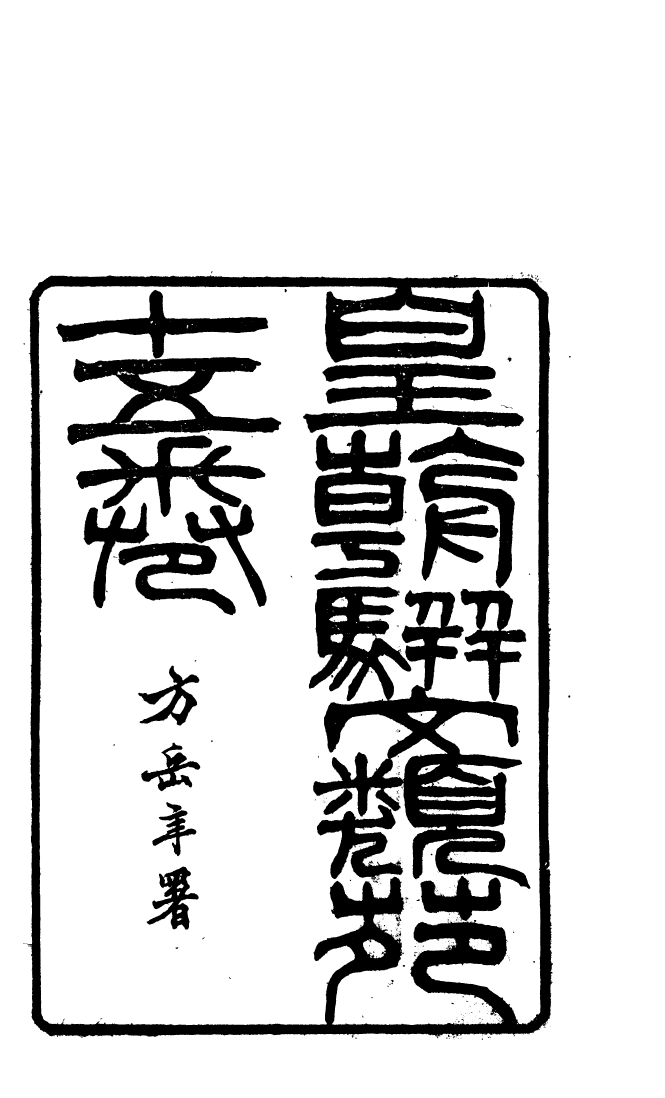 皇朝駢文類苑
十五卷
方岳年署